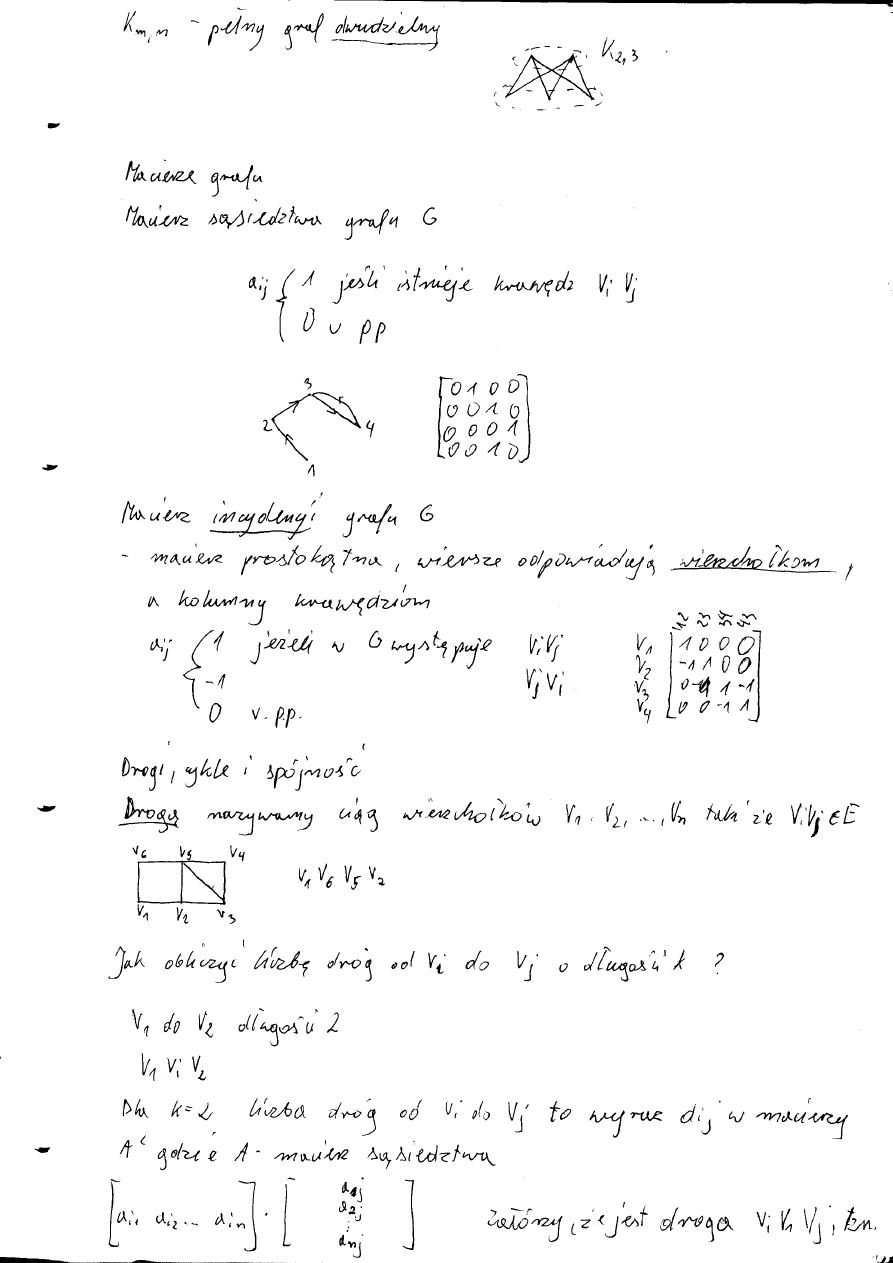 K_{m,n} - pełny graf dwudzielny
K_{2,3}
Macierze grafu
Macierz sąsiedztwa grafu G
a_{ij} { 1 jeśli istnieje krawędz V_i V_j
0 w pp
3
2
4
1
[0 1 0 0]
[0 0 1 0]
[0 0 0 1]
[0 0 1 0]
Macierz incydencji grafu G
- macierz prostokątna, wiersze odpowiadają wierzchołkom,
a kolumny krawędziom
12 23 34 43
a_{ij} { 1 jeżeli w G występuje V_iV_j
-1 V_jV_i
0 w p.p.
V_1 [1 0 0 0]
V_2 [-1 1 0 0]
V_3 [0 -1 1 -1]
V_4 [0 0 -1 1]
Drogi, cykle i spójność
Drogą nazywamy ciąg wierzchołków V_1, V_2, ..., V_n taki że V_iV_j ∈ E
V_6 V_5 V_4
V_1 V_6 V_5 V_2
V_1 V_2 V_3
Jak obliczyć liczbę dróg od V_i do V_j o długości k ?
V_1 do V_2 długości 2
V_1 V_i V_2
Dla k=2 liczba dróg od V_i do V_j to wyraz a_{ij} w macierzy
gdzie A - macierz sąsiedztwa
[a_{i1} a_{i2} ... a_{in}] · [a_{1j} a_{2j} ⋮ a_{nj}] załóżmy, że jest droga V_i V_k V_j, tzn.